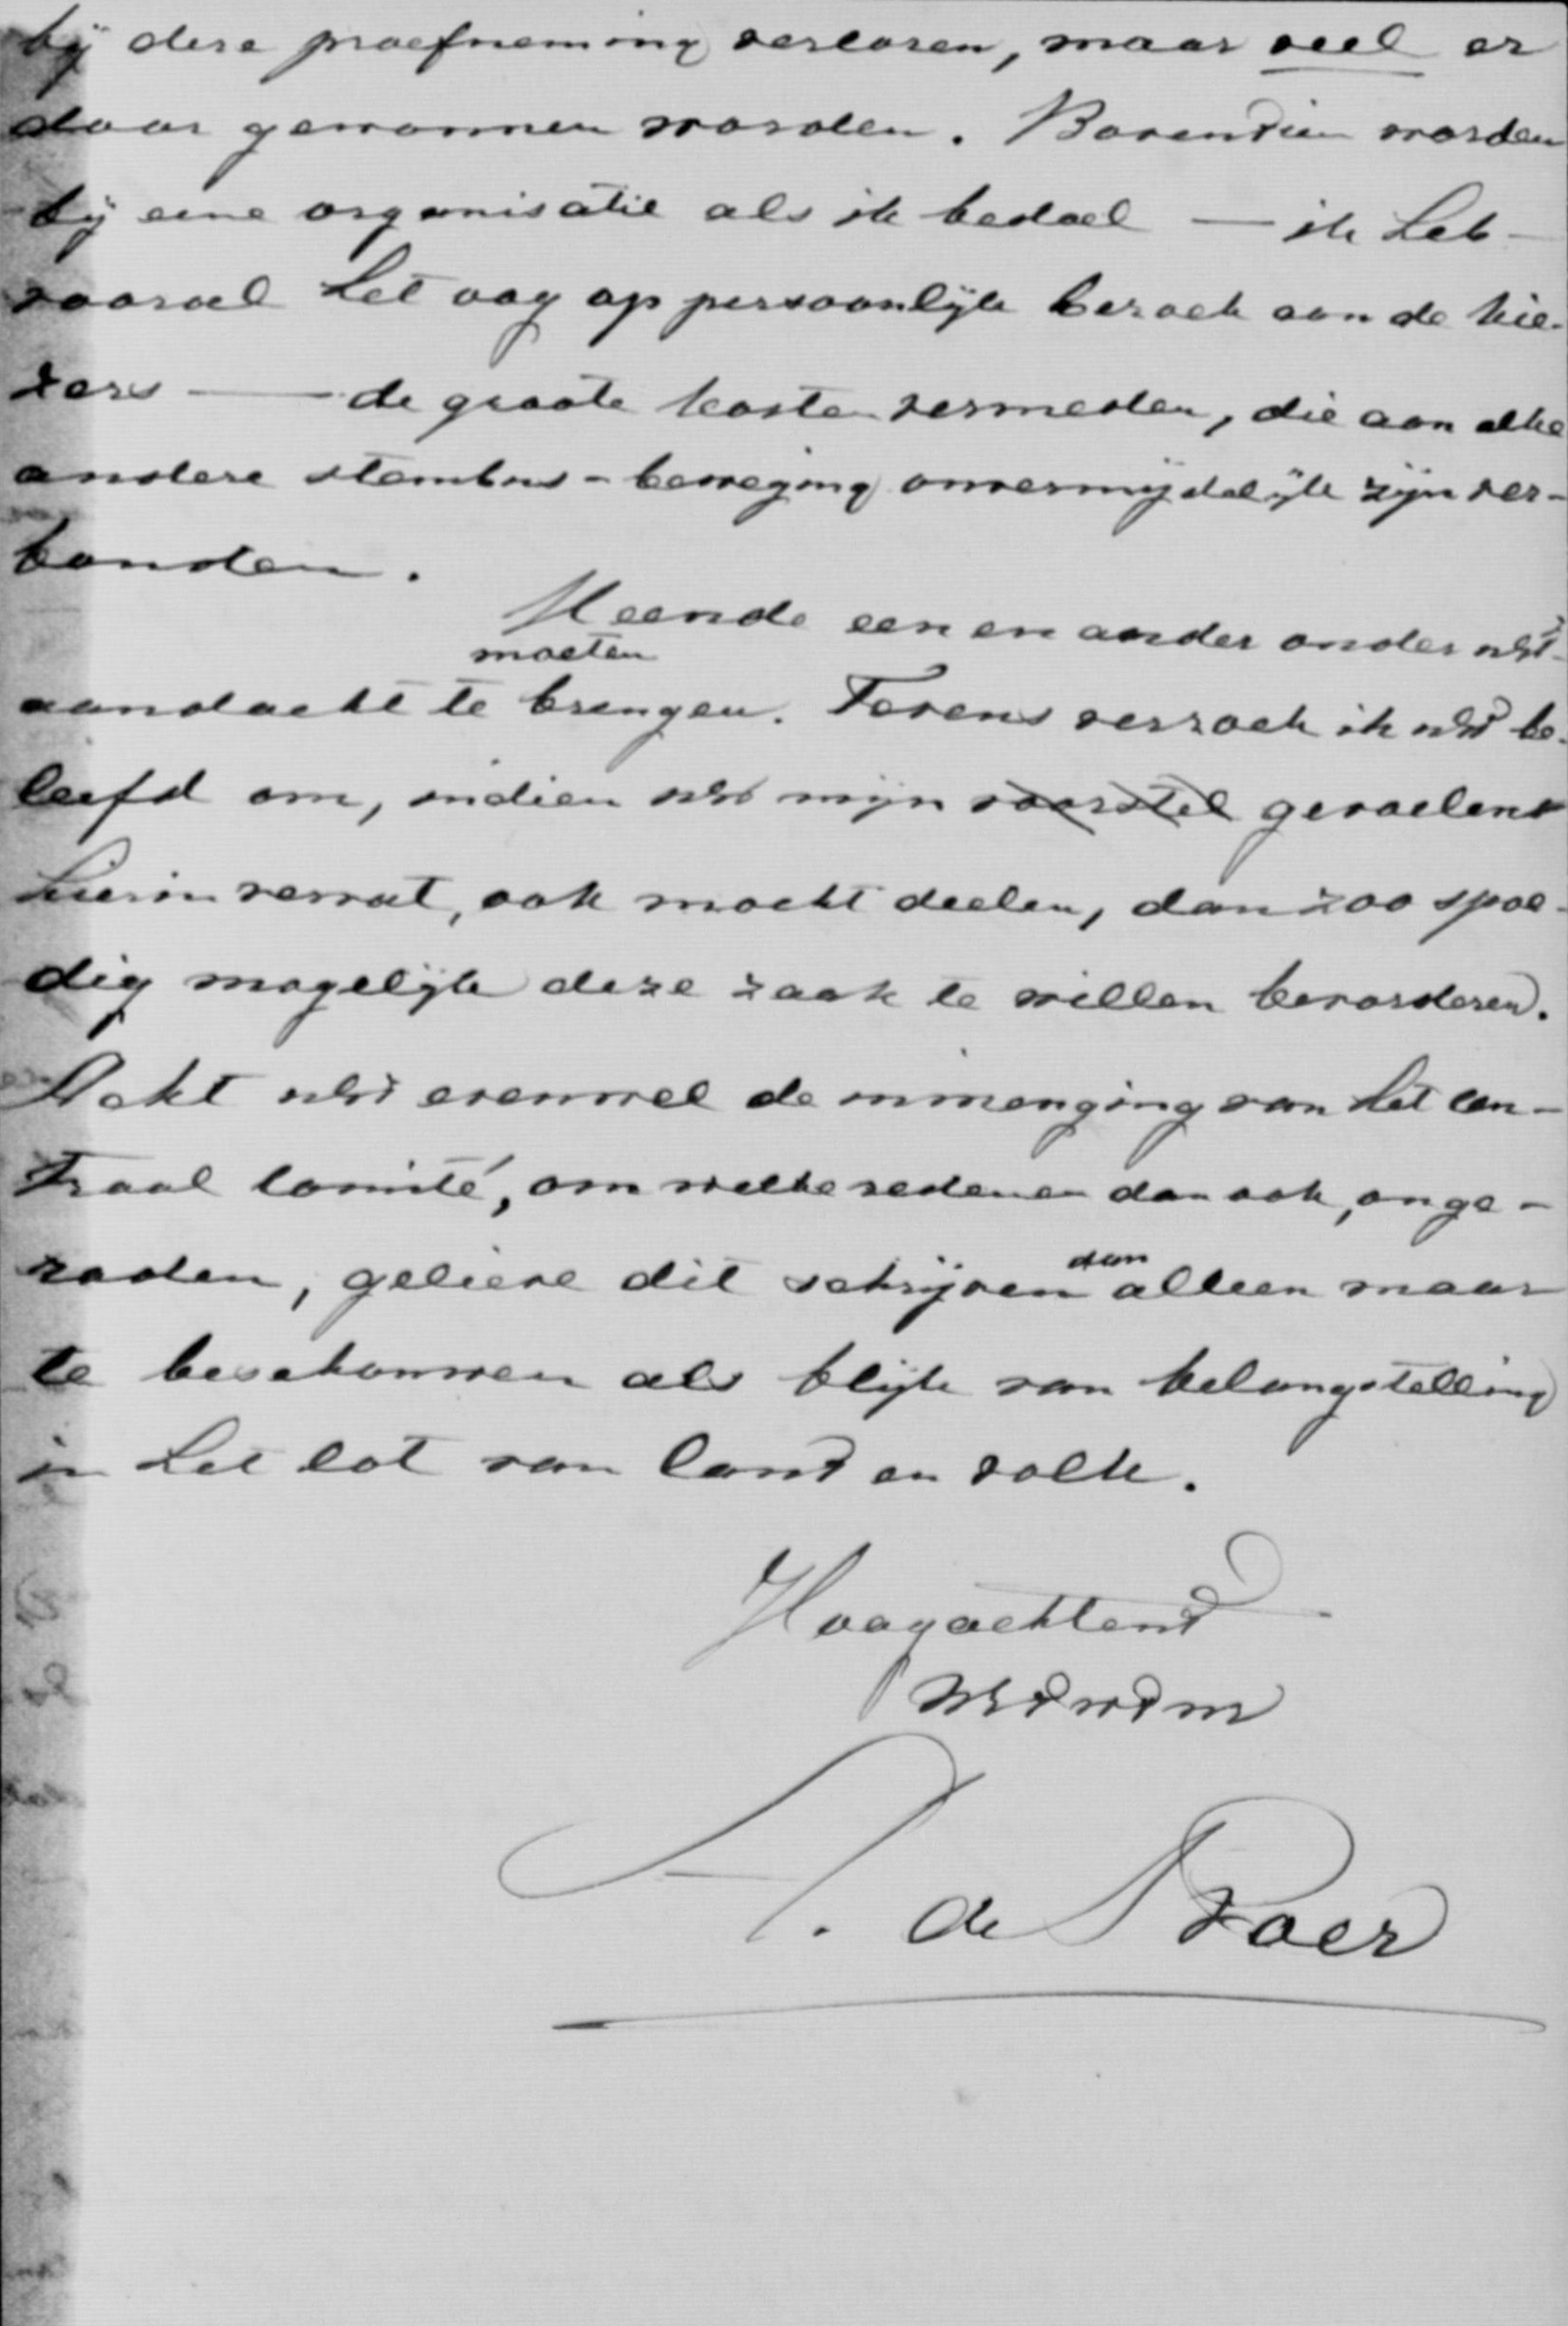 bij deze proefneming verloren, maar veel er
door gewonnen worden. Bovendien worden
bij eene organisatie als ik bedoel — ik heb
vooral het oog op persoonlijk bezoek aan de kie-
zers — de groote kosten vermeden, die aan elke
andere stembus-beweging onvermijdelijk zijn ver-
bonden.
Meende een en ander onder UEd's
moeten
aandacht te brengen. Tevens verzoek ik UEd be-
leefd om, indien UEd mijn voorstel gevoelens
hierin vervat, ook mocht deelen, dan zoo spoe-
dig mogelijk deze zaak te willen bevorderen.
Acht UEd evenwel de inmenging van het Cen-
traal Comité, om welke redenen dan ook, onge-
raden, gelieve dit schrijven dan alleen maar
te beschouwen als blijk van belangstelling
in het lot van land en volk.
Hoogachtend
UEdwdm
A. de Boer